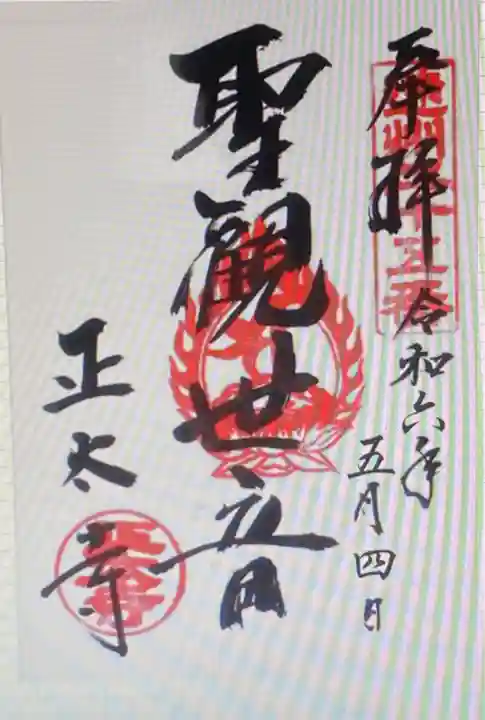 奉拝
令和六年
五月四日
聖觀世音
正太寺